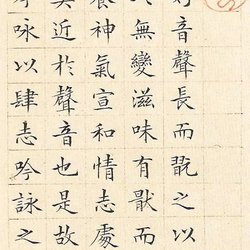 好音聲長而翫之以
無變滋味有猒而
養神氣宣和情志處
莫近於聲音也是故
咏以肆志吟詠之